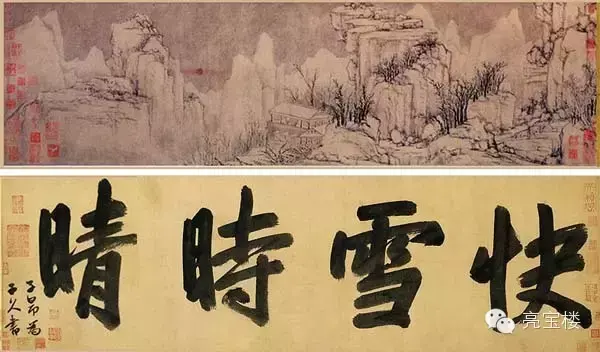 快雪時晴
子昂為
子久書
亮宝楼